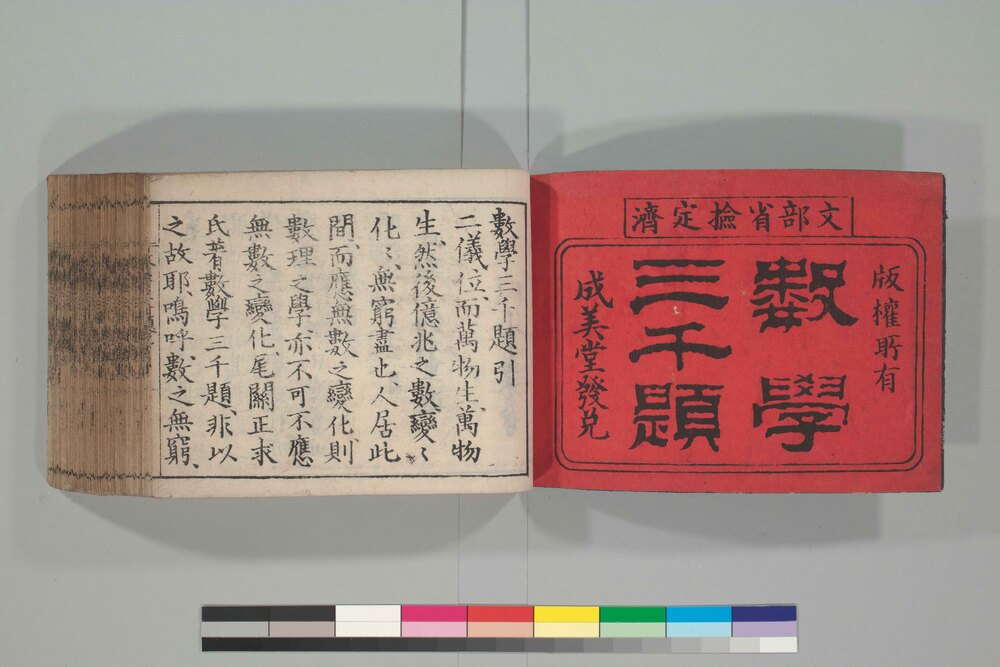 文部省撿定濟
版權所有
數學
三千題
成美堂發兌
數學三千題引
二儀位、而萬物生、萬物
生、然後億兆之數、變〻
化〻、無窮盡也、人居此
間、而應無數之變化、則
數理之學、亦不可不應
無數之變化、尾關正求
氏著數學三千題、非以
之故耶、嗚呼、數之無窮、